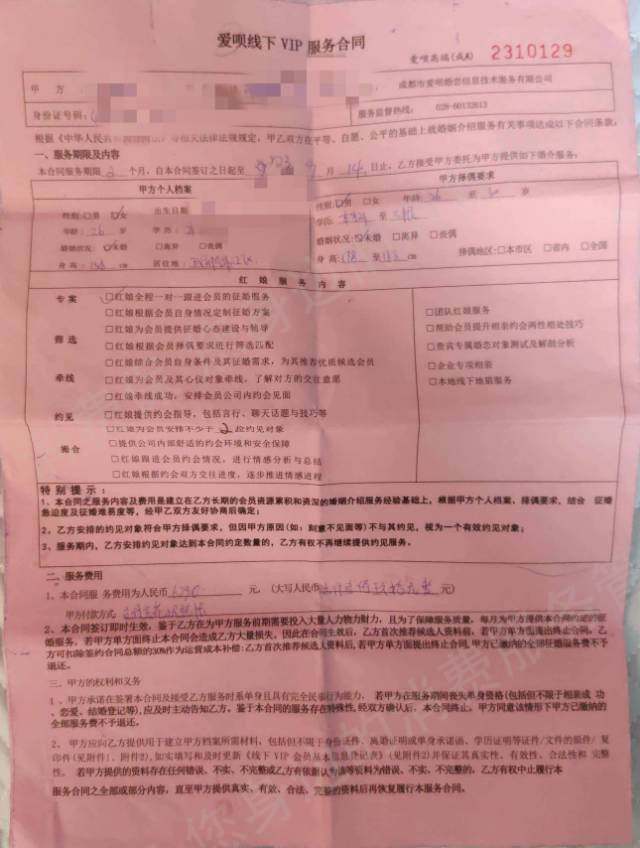 爱呗线下 VIP 服务合同
爱呗高端(成A) 2310129
甲 方
成都市爱呗婚恋信息技术服务有限公司
身份证号码:
服务监督热线: 028-60132613
根据《中华人民共和国 法律法规规定, 甲乙双方在平等、自愿、公平的基础上就婚姻介绍服务有关事项达成以下合同条款:
一、服务期限及内容
本合同服务期限 2 个月, 自本合同签订之日起至 9 月 14 日止, 乙方接受甲方委托为甲方提供如下婚介服务:
甲方个人档案 甲方择偶要求
性别: □男 □女 出生日期
性别: □男 □女 年龄: 26 至 30 岁
年龄: 26 岁 学 历:
学历: 至
婚姻状况: □未婚 □离异 □丧偶
婚姻状况: □未婚 □离异 □丧偶
身 高: 158 cm 居住地:
身 高: 178 至 cm 择偶地区: □本市区 □省内 □全国
红 娘 服 务 内 容
专 案 □红娘全程一对一跟进会员的征婚服务
□红娘根据会员自身情况定制征婚方案
□红娘为会员提供征婚心态建设与辅导
筛 选 □红娘根据会员择偶要求进行筛选匹配
□红娘综合会员自身条件及其征婚需求, 为其推荐优质候选会员
牵线 □红娘为会员及其心仪对象牵线, 了解对方的交往意愿
□红娘牵线成功, 安排会员公司内约会见面
约见 □红娘提供约会指导, 包括言行、聊天话题与技巧等
□红娘为会员安排不少于 2 位约见对象
撮合 □提供公司内部舒适的约会环境和安全保障
□红娘跟进会员约会情况, 进行情感分析与总结
□红娘根据约会双方交往进度, 逐步推进情感进程
□团队红娘服务
□帮助会员提升相亲约会两性相处技巧
□费宾专属婚恋对象测试及解剖分析
□企业专项相亲
□本地线下地婚服务
特 别 提 示 :
1、本合同之服务内容及费用是建立在乙方长期的会员资源累积和资深的婚姻介绍服务经验基础上, 根据甲方个人档案、择偶要求, 结合 征婚
务迫度及征婚难易度等, 经甲乙双方友好协商后确定;
2、乙方安排的约见对象符合甲方择偶要求, 但因甲方原因(如: 刻意不见面等)不与其约见, 视为一个有效约见对象;
3、服务期内, 乙方安排约见对象达到本合同约定数量的, 乙方有权不再继续提供约见服务。
二、服务费用
1. 本合同服 务费用为人民币 元, (大写人民币 元)
甲方付款方式:
2、本合同签订即时生效, 鉴于乙方在为甲方服务前期需要投入大量人力物力财力, 且为了保障服务质量, 每月为甲方提供本合同约定的征
婚服务, 若甲方单方面终止本合同会造成乙方大量损失, 因此在合同生效后, 乙方首次推荐候选人资料前, 若甲方单方面提出终止合同, 乙
方可扣除签约合同总额的30%作为运营成本补偿; 乙方首次推荐候选人资料后, 若甲方单方面提出终止合同, 甲方已缴纳的全部征婚服务费不予
退还。
三、甲方的权利和义务
1 、甲方承诺在签署本合同及接受乙方服务时系单身且具有完全民事行为能力, 若甲方在服务期间丧失单身资格(包括但不限于相亲成 功
、恋爱、结婚登记等), 应及时主动告知乙方。鉴于本合同的服务存在特殊性, 经双方确认后, 本合同终止, 甲方同意该情形下甲方已缴纳的
全部服务费不予退还。
2 、甲方应向乙方提供用于建立甲方档案所需材料, 包括但不限于身份证件、离婚证明或单身承诺函、学历证明等证件/文件的原件/ 复
印件(见附件1, 附件2), 如实填写和及时更新《线下 VIP 会员基本信息登记表》(见附件2)并保证其真实性、有效性、合法性和 完整
性。若甲方提供的资料存在任何错误、不实、不完整或乙方有依据认为该等资料为错误、不实、不完整的, 乙方有权中止履行本
服务合同之全部或部分内容, 直至甲方提供真实、有效、合法、完整的资料后再恢复履行本服务合同。